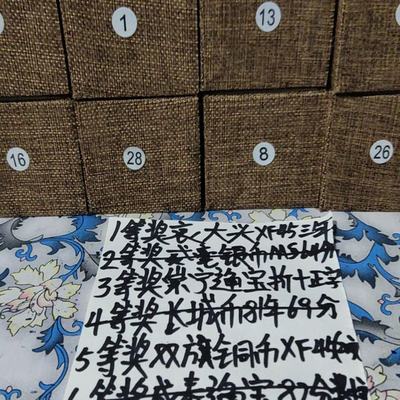 1
13
16
28
8
26
1等奖 大兴XF45三
2等奖 银币MS64分
3等奖崇宁通宝折十正字
4等奖长城币81年69分
5等奖双旗铜币XF45
等奖 通宝82分